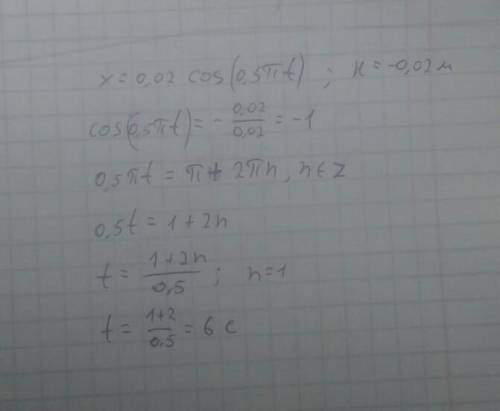 x = 0,02 cos(0,5πt) ; x = -0,02 м
cos(0,5πt) = - 0,02/0,02 = -1
0,5πt = π + 2πn, n ∈ Z
0,5t = 1 + 2n
t = (1+2n)/0,5 ; n=1
t = (1+2)/0,5 = 6 с